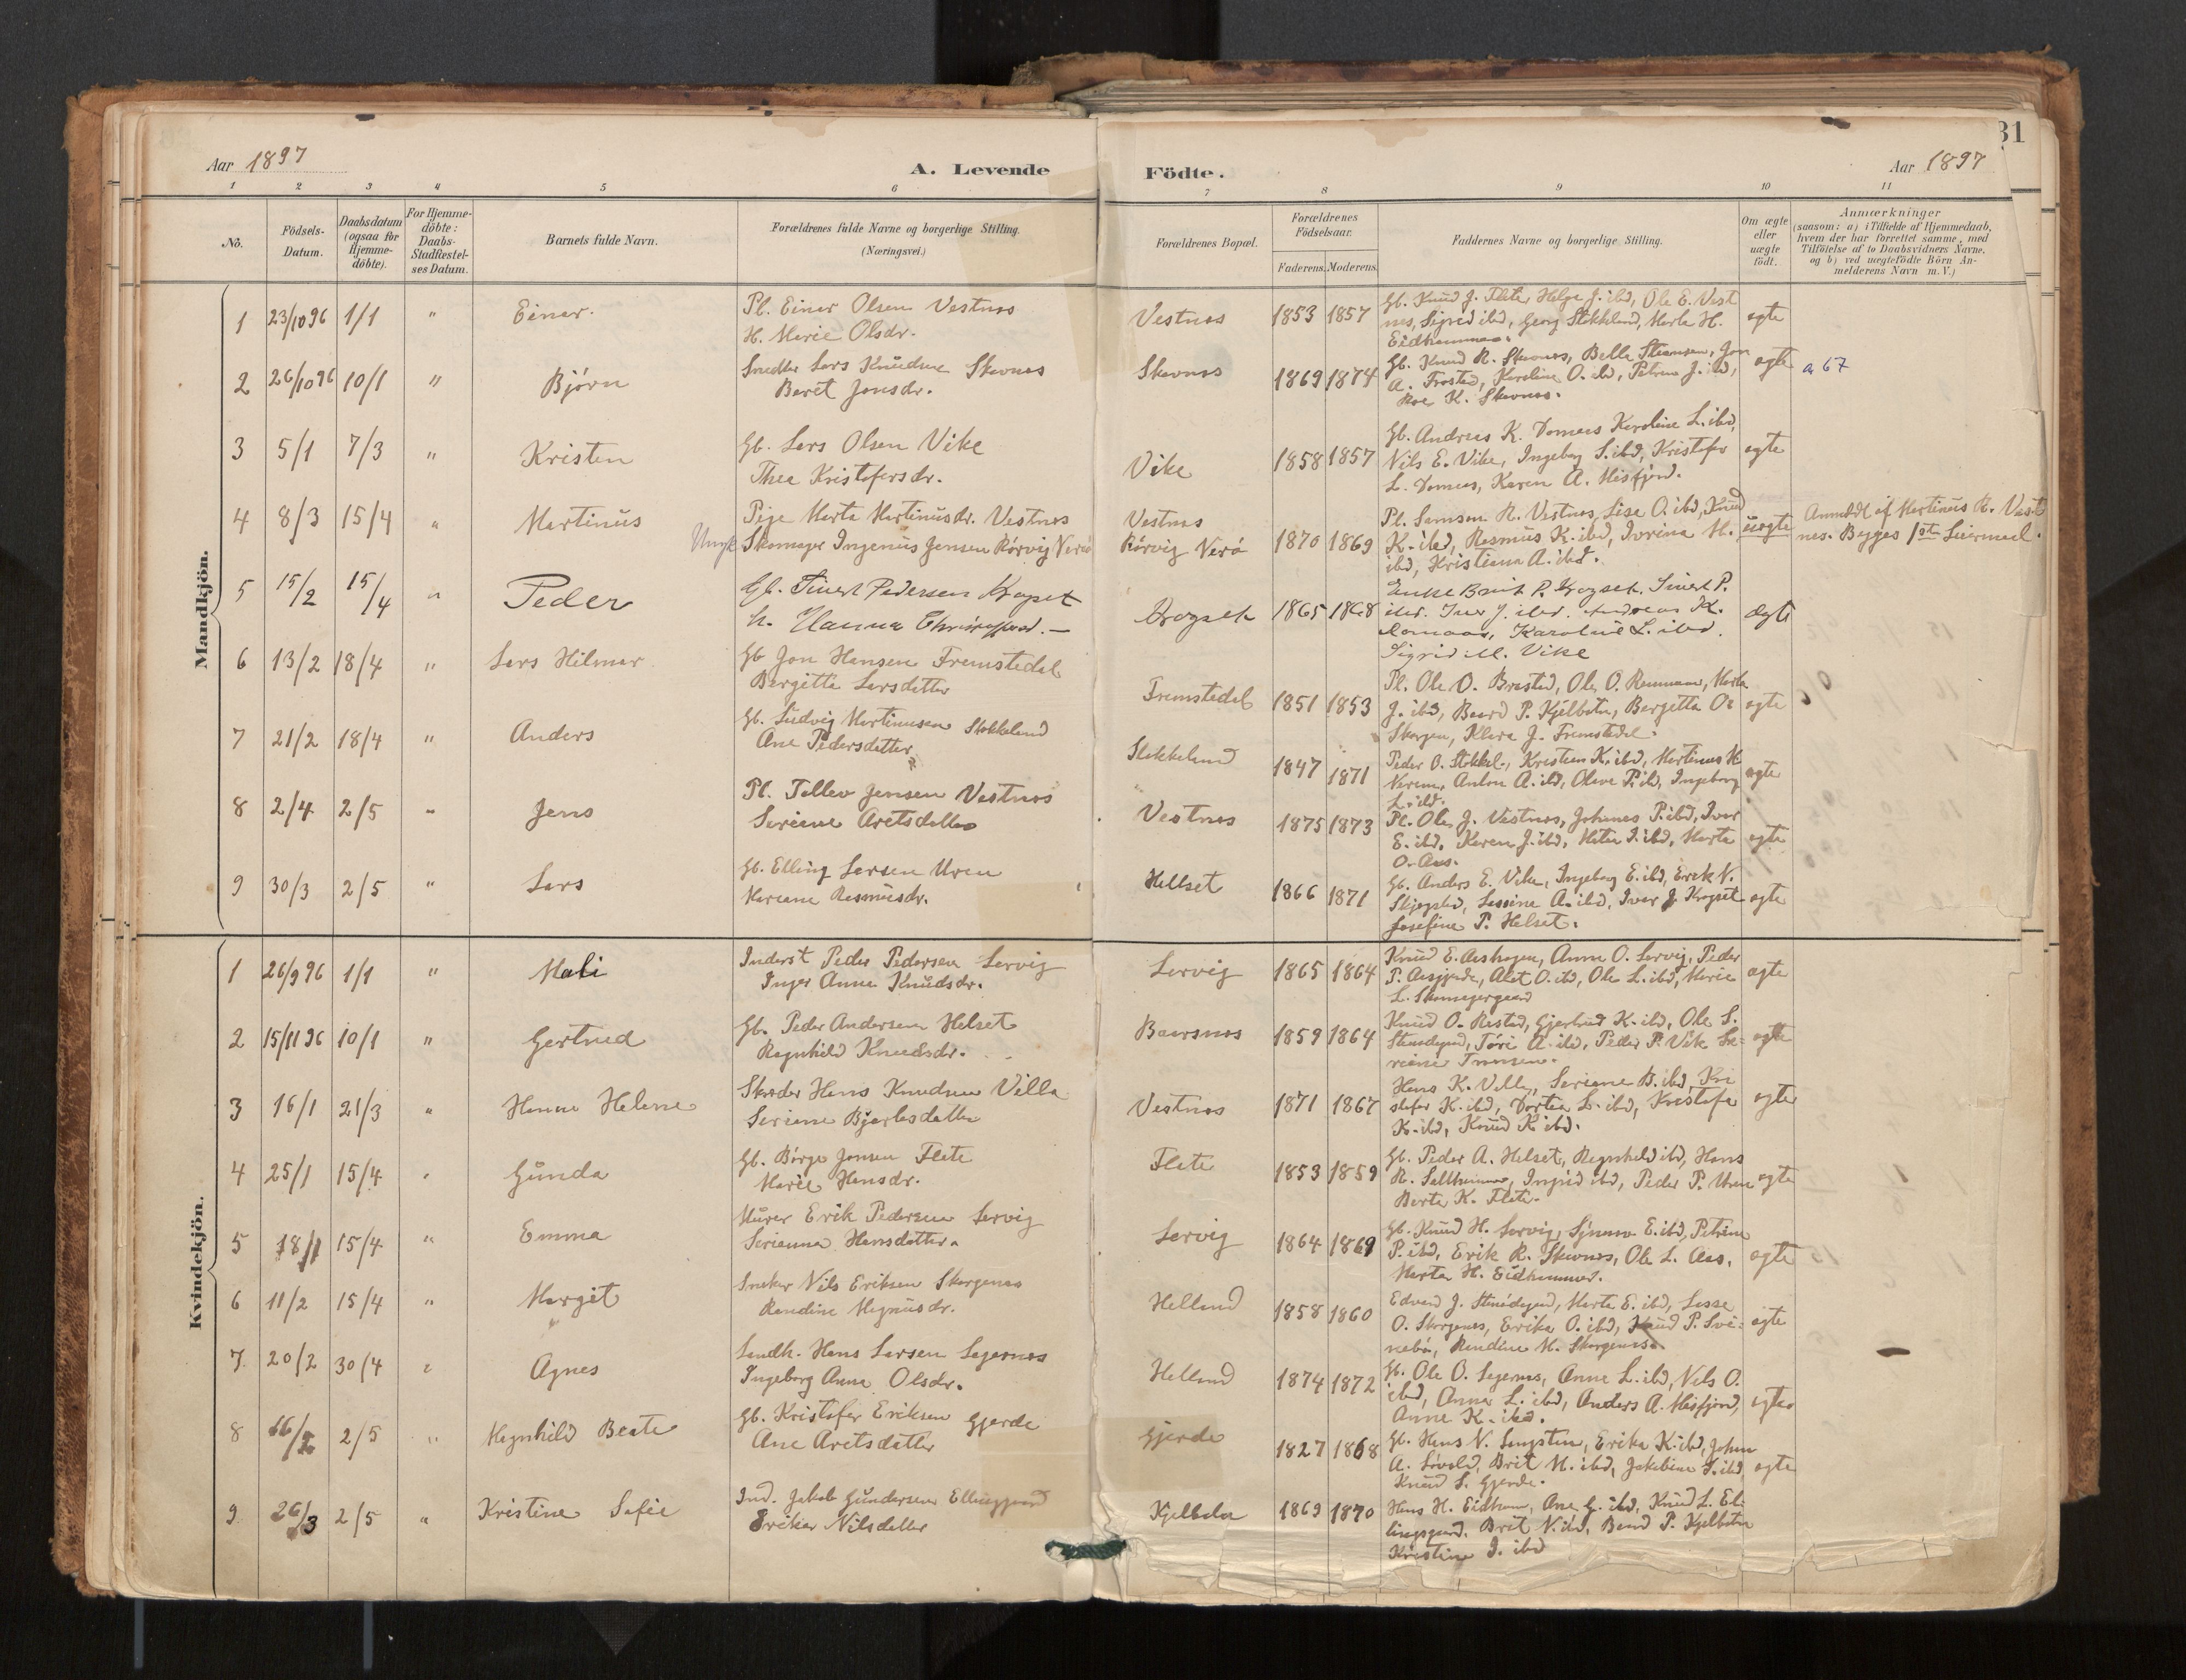 31
Aar 1897
A. Levende
Födte.
Aar 1897
1 2 3 4 5 6 7 8 9 10 11
No.
Födsels-
Datum.
Daabsdatum
(ogsaa for
Hjemme-
döbte).
For Hjemme-
döbte:
Daabs-
Stadfæstel-
ses Datum.
Barnets fulde Navn.
Forældrenes fulde Navne og borgerlige Stilling.
(Næringsvei.)
Forældrenes Bopæl.
Forældrenes
Födselsaar.
Faderens. Moderens.
Faddernes Navne og borgerlige Stilling.
Om ægte
eller
uægte
födt.
Anmærkninger
(saasom: a) i Tilfælde af Hjemmedaab,
hvem der har forrettet samme, med
Tilföielse af to Daabsvidners Navne,
og b) ved uægtefödte Börn An-
melderens Navn m. V.)
Mandkjön.
1 23/10 96 1/1 " Einar.
Pl. Einar Olsen Vestnes
H. Marie Olsdr.
Vestnes 1853 1857
Gb. Knud J. Flate, Helge J. ibd, Ole E. Vest
nes, Sigrid ibd, Georg Stokkeland, Marta H.
Eidhammer.
ægte
2 26/10 96 10/1 " Bjørn
Smed Lars Knudsen Skevnes
Beret Jonsdr.
Skevnes 1869 1874
Gb. Knud R. Skevnes, Jon
A. Frostad, Karoline O. ibd, Petrine J. ibd,
K. Skevnes.
ægte a 67
3 5/1 7/3 " Kristen
Gb. Lars Olsen Vike
Thea Kristofersdr.
Vike 1858 1857
Gb. Andreas K. Domaas Karoline L. ibd,
Nils E. Vike, Ingeborg S. ibd, Kristofer
L. Domaas, Karen A. Misfjord.
ægte
4 8/3 15/4 " Martinus
Pige Marta Martinusdr. Vestnes
Ungk. Skomager Ingenius Jensen Rörvig Verö
Vestnes
Rörvig Verö 1870 1869
Pl. Samson R. Vestnes, Lise O. ibd, Knud
K. ibd, Rasmus K. ibd, Ivrina M.
ibd, Kristianna A. ibd.
uægte
Anmeldt af Martinus K. Vest
nes. Begges 1ste Leiermaal.
5 15/2 15/4 " Peder
Gb. Sivert Pedersen Kropset
h. Hanna
1865 1868
Enke Brit P. Sivert P.
ibd. Iver J. ibd. Andreas K.
Domaas, Karoline L. ibd.
Sigrid M. Vike
ægte
6 13/2 18/4 " Lars Hilmar
Gb Jon Hansen Fremstedal
Bergitte Larsdatter
Fremstedal 1851 1853
Pl. Ole O. Brastad, Ole O. Remmem, Marta
J. ibd, Baard P. Kjelbotn, Bergitta O.
Skorgen, Klara J. Fremstedal.
ægte
7 21/2 18/4 " Anders
Gb. Ludvig Martinusen Stokkeland
Ane Pedersdatter
Stokkeland 1847 1871
Peder O. Stokkel., Kristen K. ibd, Martinus K
Anton A. ibd, Olave P. ibd, Ingeborg
L. ibd.
ægte
8 2/4 2/5 " Jens
Pl. Tellev Jensen Vestnes
Seriane Aretsdatter
Vestnes 1875 1873
Pl. Ole J. Vestnes, Johannes P. ibd, Iver
E. ibd, Karen J. ibd, I. ibd, Marta
O. Aas.
ægte
9 30/3 2/5 " Lars
Gb. Elling Larsen Uren
Mariane Rasmusdr.
Hellset 1866 1871
Gb. Anders E. Vike, Ingeborg E. ibd, Erik N.
A. ibd, Iver J. Kropset
Josefine P. Helset.
ægte
Kvindekjön.
1 26/9 96 1/1 " Mali
Inderst Peder Pedersen Lervig
Inger Anna Knudsdr.
Lervig 1865 1864
Knud E. Anne O. Lervig, Peder
P. Alet O. ibd, Ole L. ibd, Marie
L. Skomagergaard
ægte
2 15/11 96 10/1 " Gertrud
Gb. Peder Andersen Helset
Ragnhild Knudsdr.
Baarsnes 1859 1864
Knud O. Restad, Gjertrud K. ibd, Ole S.
A. ibd, Peder P. Vik Se-
riane
ægte
3 16/1 21/3 " Hanne Helene
Skræder Hans Knudsen Villa
Seriane Bjertesdatter
Vestnes 1871 1867
Hans K. Villa, Seriane B. ibd, Kri
stofer K. ibd, Dortea L. ibd, Kristofer
K. ibd, Knud K ibd.
ægte
4 25/1 15/4 " Gunda
Gb. Börge Jonsen Flate
Marie Hansdr.
Flate 1853 1859
Gb. Peder A. Helset, Ragnhild ibd, Hans
R. Ingrid ibd, Peder P. Uren
Berta K. Flate.
ægte
5 18/1 15/4 " Emma
Murer Erik Pedersen Lervig
Serianna Hansdatter.
Lervig 1864 1869
Gb. Knud H. Lervig, E. ibd, Petrine
P. ibd, Erik R. Skevnes, Ole L. Aas.
Marta H. Eidhammer.
ægte
6 11/2 15/4 " Margit
Snekr Nils Eriksen Skorgenes
Randine Magnusdr.
Helland 1858 1860
Edvard J. Marta E. ibd, Lasse
O. Skorgenes, Erika O. ibd, Knud P. Svi-
nebö, Randine M. Skorgenes.
ægte
7. 20/2 30/4 " Agnes
Landh. Hans Larsen Segernes
Ingeborg Anna Olsdr.
Helland 1874 1872
Gb. Ole O. Segernes, Anne L. ibd, Nils O.
ibd, Anna L. ibd, Anders A. Misfjord,
Anne K. ibd.
ægte
8 16/2 2/5 " Ragnhild Beate
Gb. Kristofer Eriksen Gjerde
Ane Aretsdatter
Gjerde 1827 1868
Gb. Hans N. Erika K. ibd, Johan
A. Brit M. ibd, Jakobine S. ibd
Knud S. Gjerde.
ægte
9 26/3 2/5 " Kristine Sofie
Ind. Jakob Gundersen Ellingsgaard
Erika Nilsdatter
Kjelbotn 1869 1870
Hans H. Eidham, Ane G. ibd, Knud L. El-
lingsgaard, Brit N. ibd, P. Kjelbotn
Kristine J. ibd